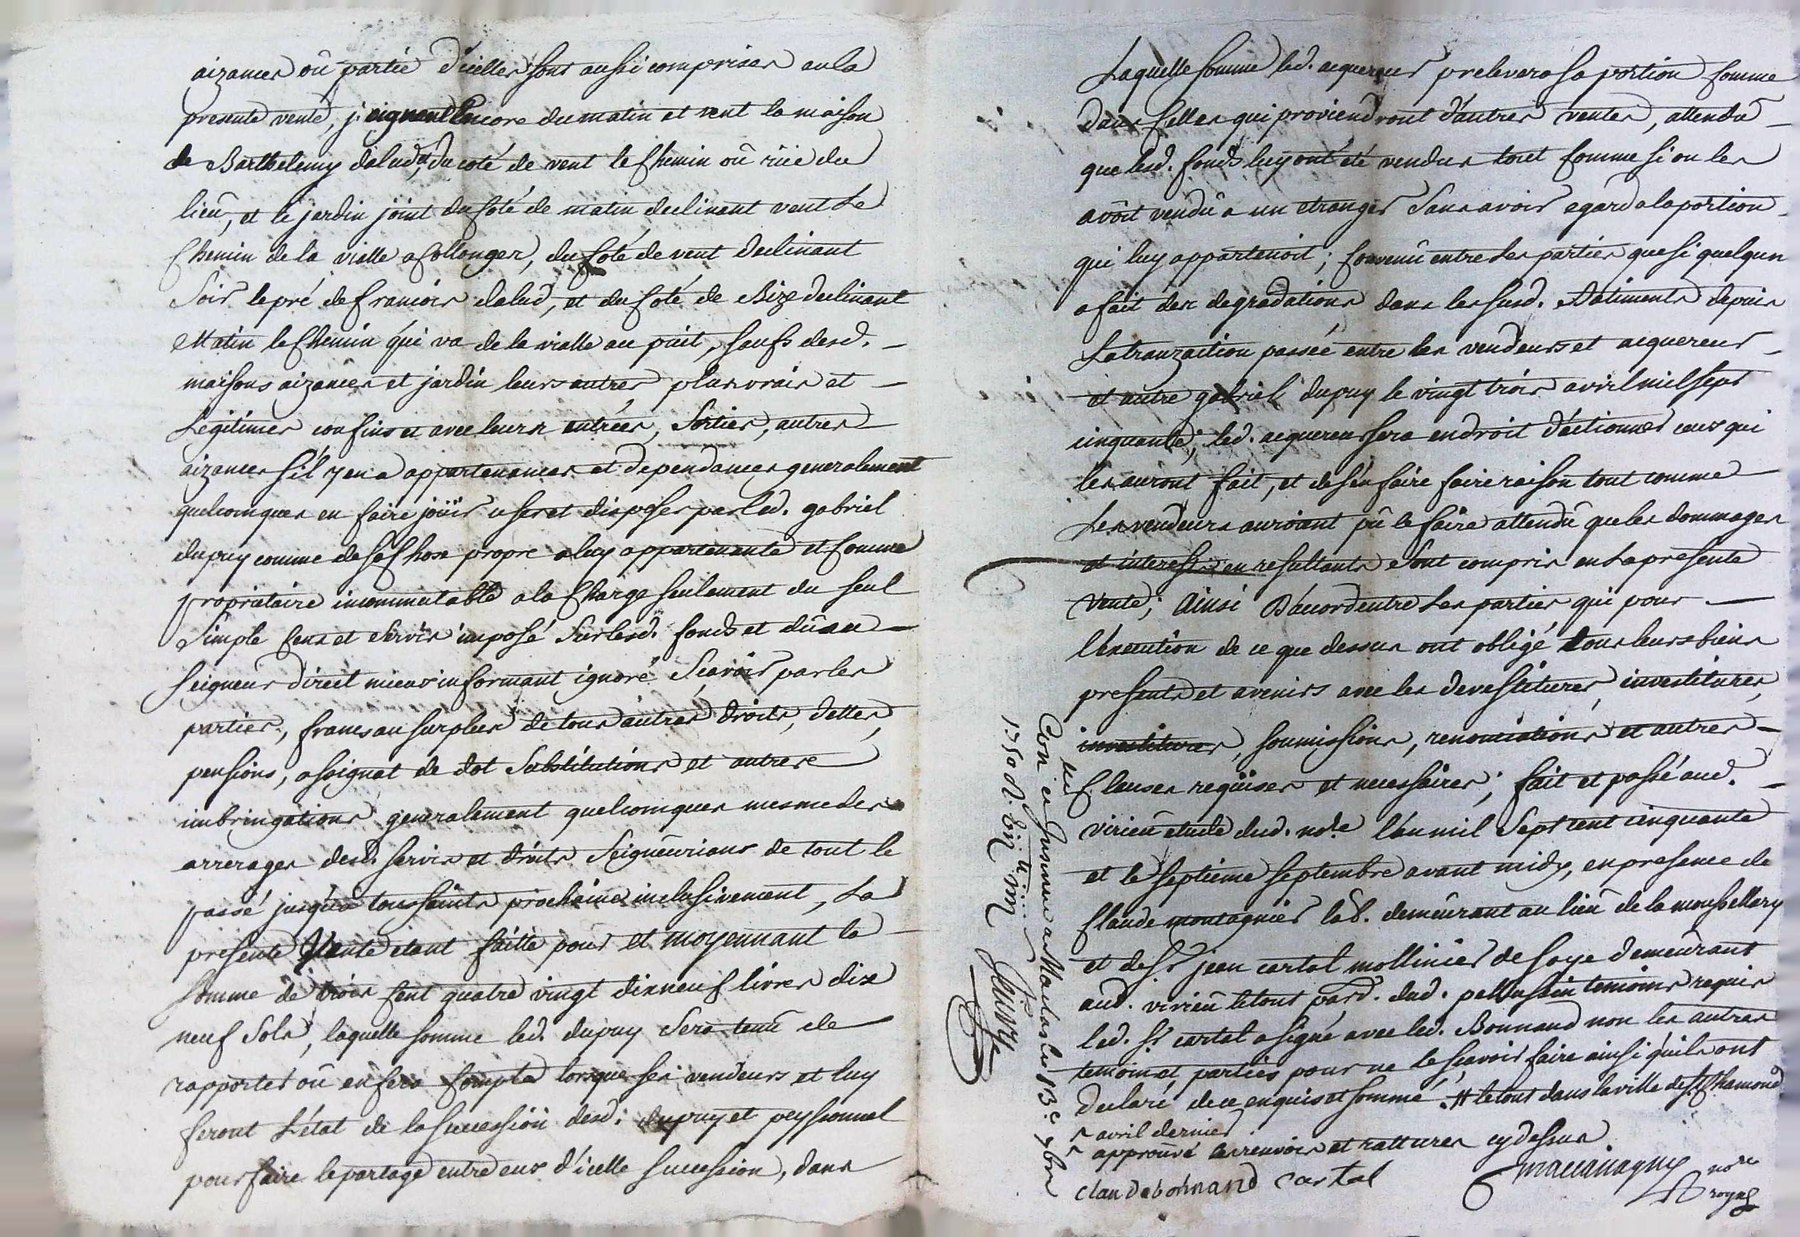 aizances où partie d'icelles sont aussi comprises en la
presente vente, joignant encore du matin et vent la maison
de Barthelemy dalud, du coté de vent le Chemin où rüe du
lieu, et le jardin joint du coté de matin declinant vent Le
Chemin de la vialle a Collonges, du coté de vent declinant
Soir le pré de francois dalud, et du coté de Bize declinant
Matin le Chemin qui va de la vialle au puit, saufs desd.
maisons aizances et jardin leurs autres plus vrais et
Legitimes confins et avec leurs entrées, Sorties, autres
aizances s'il y en a appartenances et dependances generalement
quelconques en faire joüir user et disposer par led. gabriel
dupuy comme de sa chose propre a luy appartenante et comme
proprietaire incommutable a la Charge seulement du seul
Simple Cens et Servis imposé Sur lesd. fonds et dû au
Seigneur direct mieux informant ignoré Scavoir par les
parties, francs au surplus de tous autres droits, dettes,
pensions, assignat de dot Substitutions et autres
imbringations generalement quelconques mesme des
arrerages desd. servis et droits Seigneuriaux de tout le
passé jusqu'à toussaints prochaine inclusivement, La
presente Vente etant faitte pour et moyennant la
somme de trois cent quatre vingt dix neuf livres dix
neuf Sols, laquelle somme led. dupuy Sera tenû de
rapporter où en fera Compte lorsque ses vendeurs et luy
feront L'état de la Succession desd. dupuy et peyssonnel
pour faire le partage entre eux d'icelle Succession, dans
Laquelle Somme led. acquereur prelevera Sa portion Comme
dans Celles qui proviendront d'autres ventes, attendû
que lesd. fonds luy ont été vendus tout Comme si on les
avoit vendû a un etranger Sans avoir egard a la portion
qui luy appartenoit; Convenû entre Les parties que si quelqun
a fait des degradations dans les susd. Batiments depuis
La tranzaction passée entre les vendeurs et acquereur
et autre gabriel dupuy le vingt trois avril mil sept
cinquante, led. acquereur sera en droit d'actionner ceux qui
les auront fait, et de s'en faire faire raison tout comme
Les vendeurs auroient pû le faire attendû que les dommages
et interests en resultants Sont compris en La presente
vente; Ainsi D'acord entre Les parties qui pour
l'éxecution de ce que dessus ont obligé tous leurs biens
presents et avenirs avec les devestitures, investitures,
investitures, soumissions, renonciations et autres
Clauses requises et necessaires; fait et passé aud.
virieu etude dud. nore l'an mil Sept cent cinquante
et le septieme septembre avant midy, en presence de
Claude montagnier lab. demeurant au lieu de la mousellery
et de Sr jean cartal mollinier de soye demeurant
aud. virieu le tout parr. dud. pellussin temoins requis
led. Sr cartal a signé avec led. Bonnand non les autres
temoin et parties pour ne le Scavoir faire ainsi qu'ils ont
declaré de ce enquis et sommé. # le tout dans la ville de St Chamond
^ avril dernier
^ approuvé les renvois et rattures cy dessus.
Claude bonnand Cartal
nore
royal
Con ... a Maclas ce 13e 7bre
1750